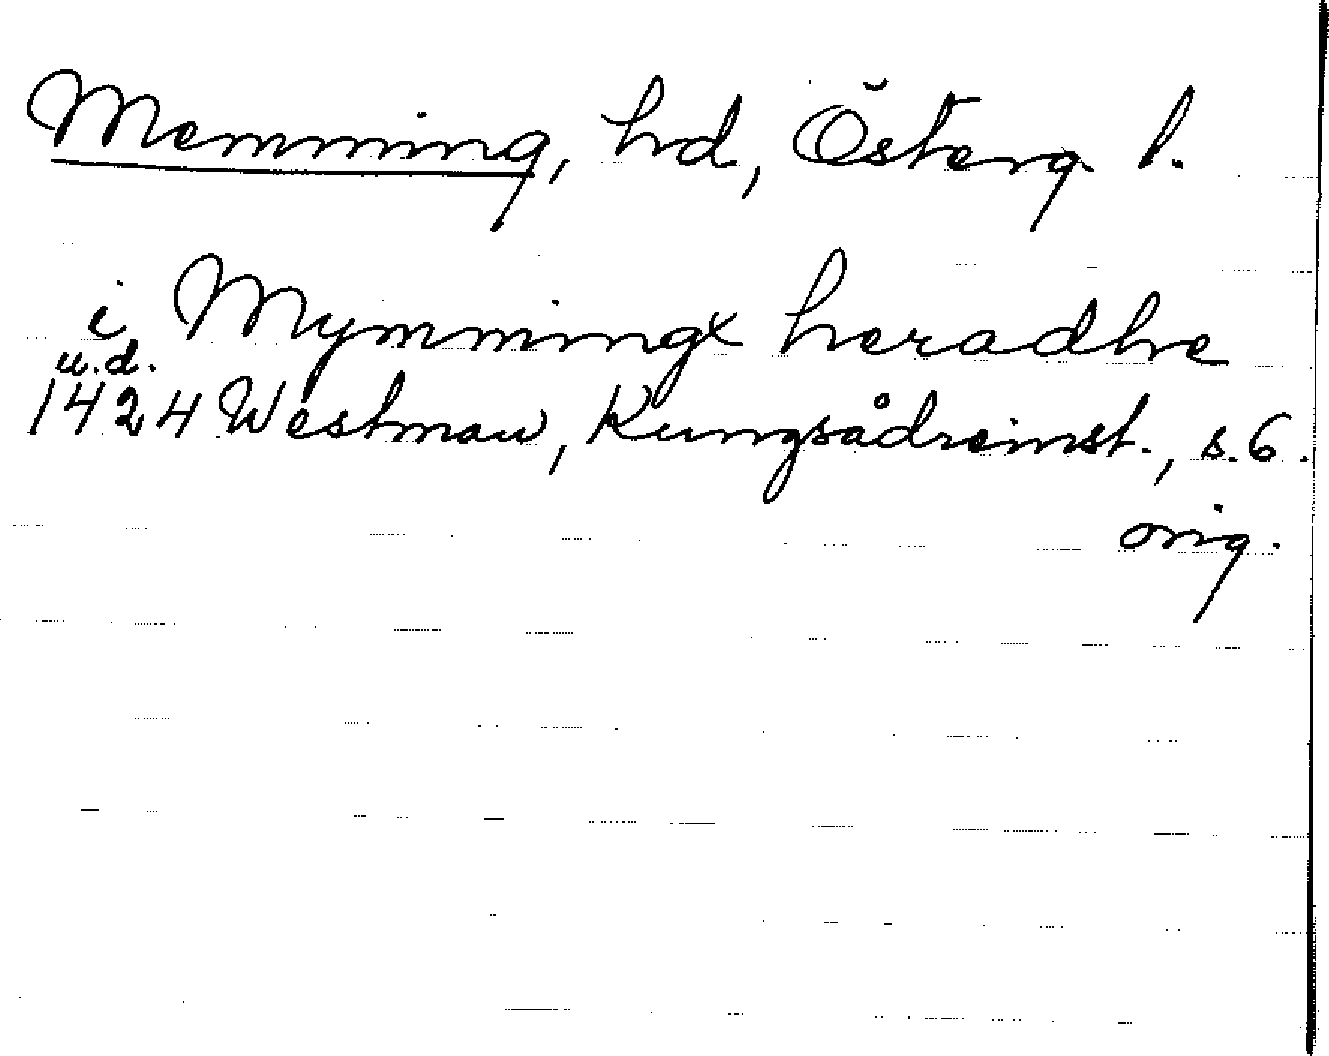 Memming, hd, Österg. l.
i Mymmingx heradhe
u.d.
1424 Westman, Kungsådreinst., s. 6.
orig.